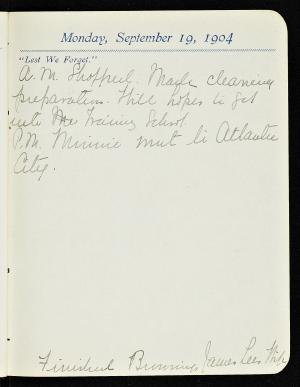 Monday, September 19, 1904
"Lest We Forget."
A.M. Shopped. Made cleaning
preparation. Still hopes to get
into the Training School
P.M. Minnie went to Atlantic
City.
Finished Burning James Lees